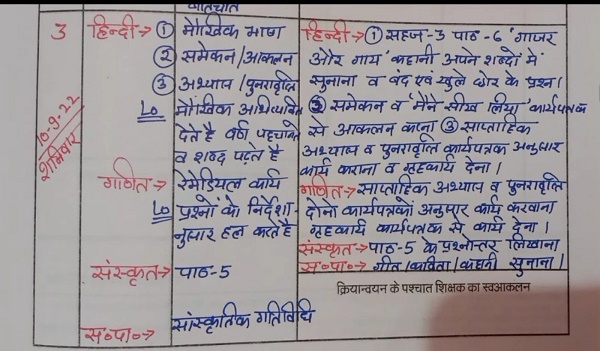 बातचीत
3 हिन्दी→ ① मौखिक भाषा
② समेकन/आकलन
③ अभ्यास/पुनरावृति
LO मौखिक अभिव्यक्ति
देते है वर्ण पहचानते
व शब्द पढ़ते है
10-9-22
शनिवार
गणित→ रेमेडियल कार्य
LO प्रश्नों को निर्देशा
नुसार हल करते है
संस्कृत→ पाठ-5
स॰पा॰→ सांस्कृतिक गतिविधि
हिन्दी→ ① सहज-3 पाठ-6 'गाजर
और गाय' कहानी अपने शब्दों में
सुनाना व बंद एवं खुले छोर के प्रश्न।
② समेकन व 'मैने सीख लिया' कार्यपत्रक
से आकलन करना ③ साप्ताहिक
अभ्यास व पुनरावृति कार्यपत्रक अनुसार
कार्य कराना व गृहकार्य देना।
गणित→ साप्ताहिक अभ्यास व पुनरावृति
दोनो कार्यपत्रकों अनुसार कार्य करवाना
गृहकार्य कार्यपत्रक से कार्य देना।
संस्कृत→ पाठ-5 के प्रश्नोत्तर लिखाना
स॰पा॰→ गीत/कविता/कहानी सुनाना।
क्रियान्वयन के पश्चात शिक्षक का स्वआकलन